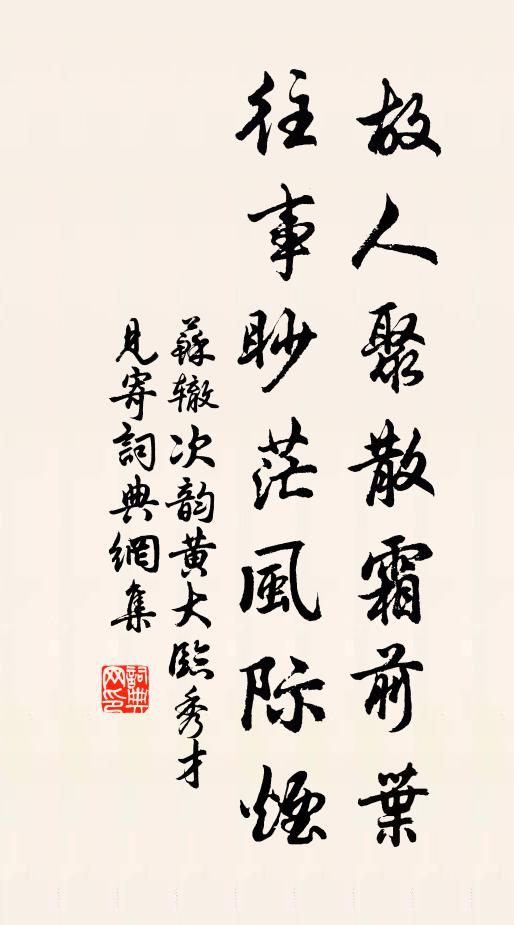 故人聚散霜前葉
往事眇茫風际煙
蘇辙次韵黄大臨秀才
見寄詞典網集
詞典網印